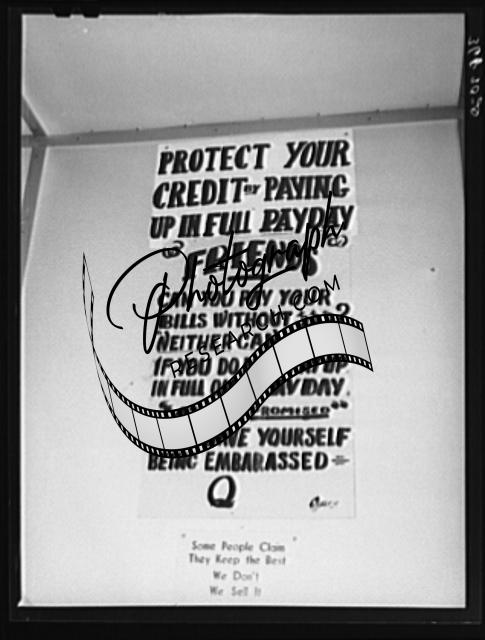 PROTECT YOUR
CREDIT BY PAYING
UP IN FULL PAYDAY
FRIENDS
CAN YOU PAY YOUR
BILLS WITHOUT ?
NEITHER CAN
IF YOU DO UP
IN FULL PAYDAY
PROMISED"
YOURSELF
BEING EMBARASSED
Q
Photograph
RESEARCH.COM
"Some People Claim"
They Keep the Best
We Don't
We Sell It